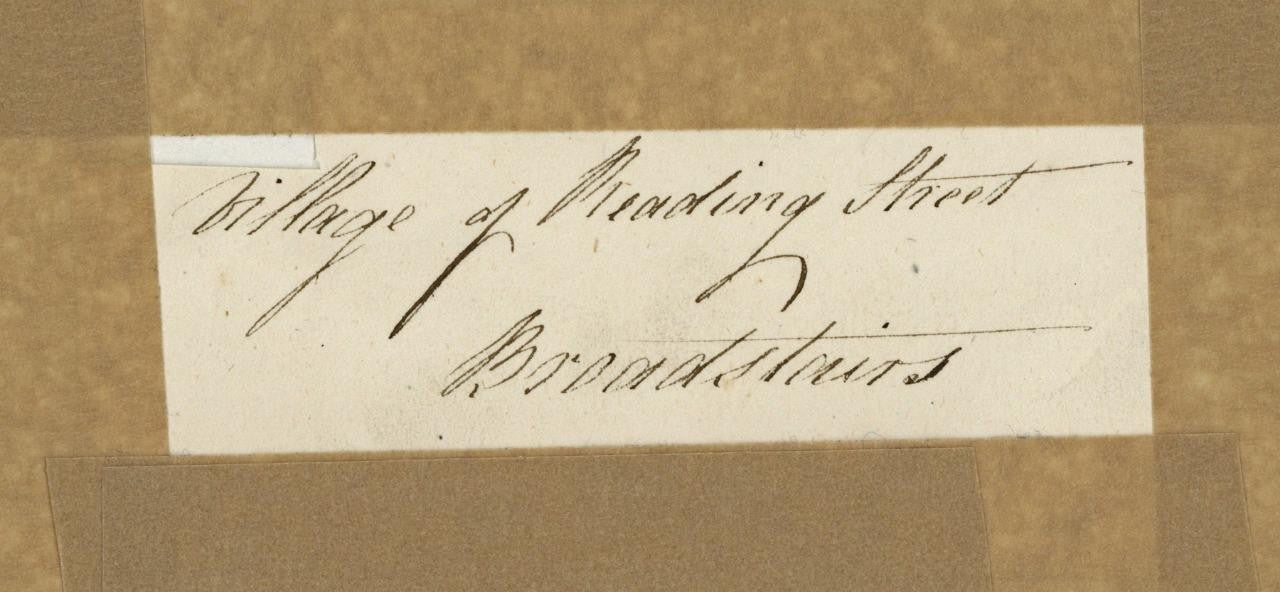 Village of Reading Street
Broadstairs